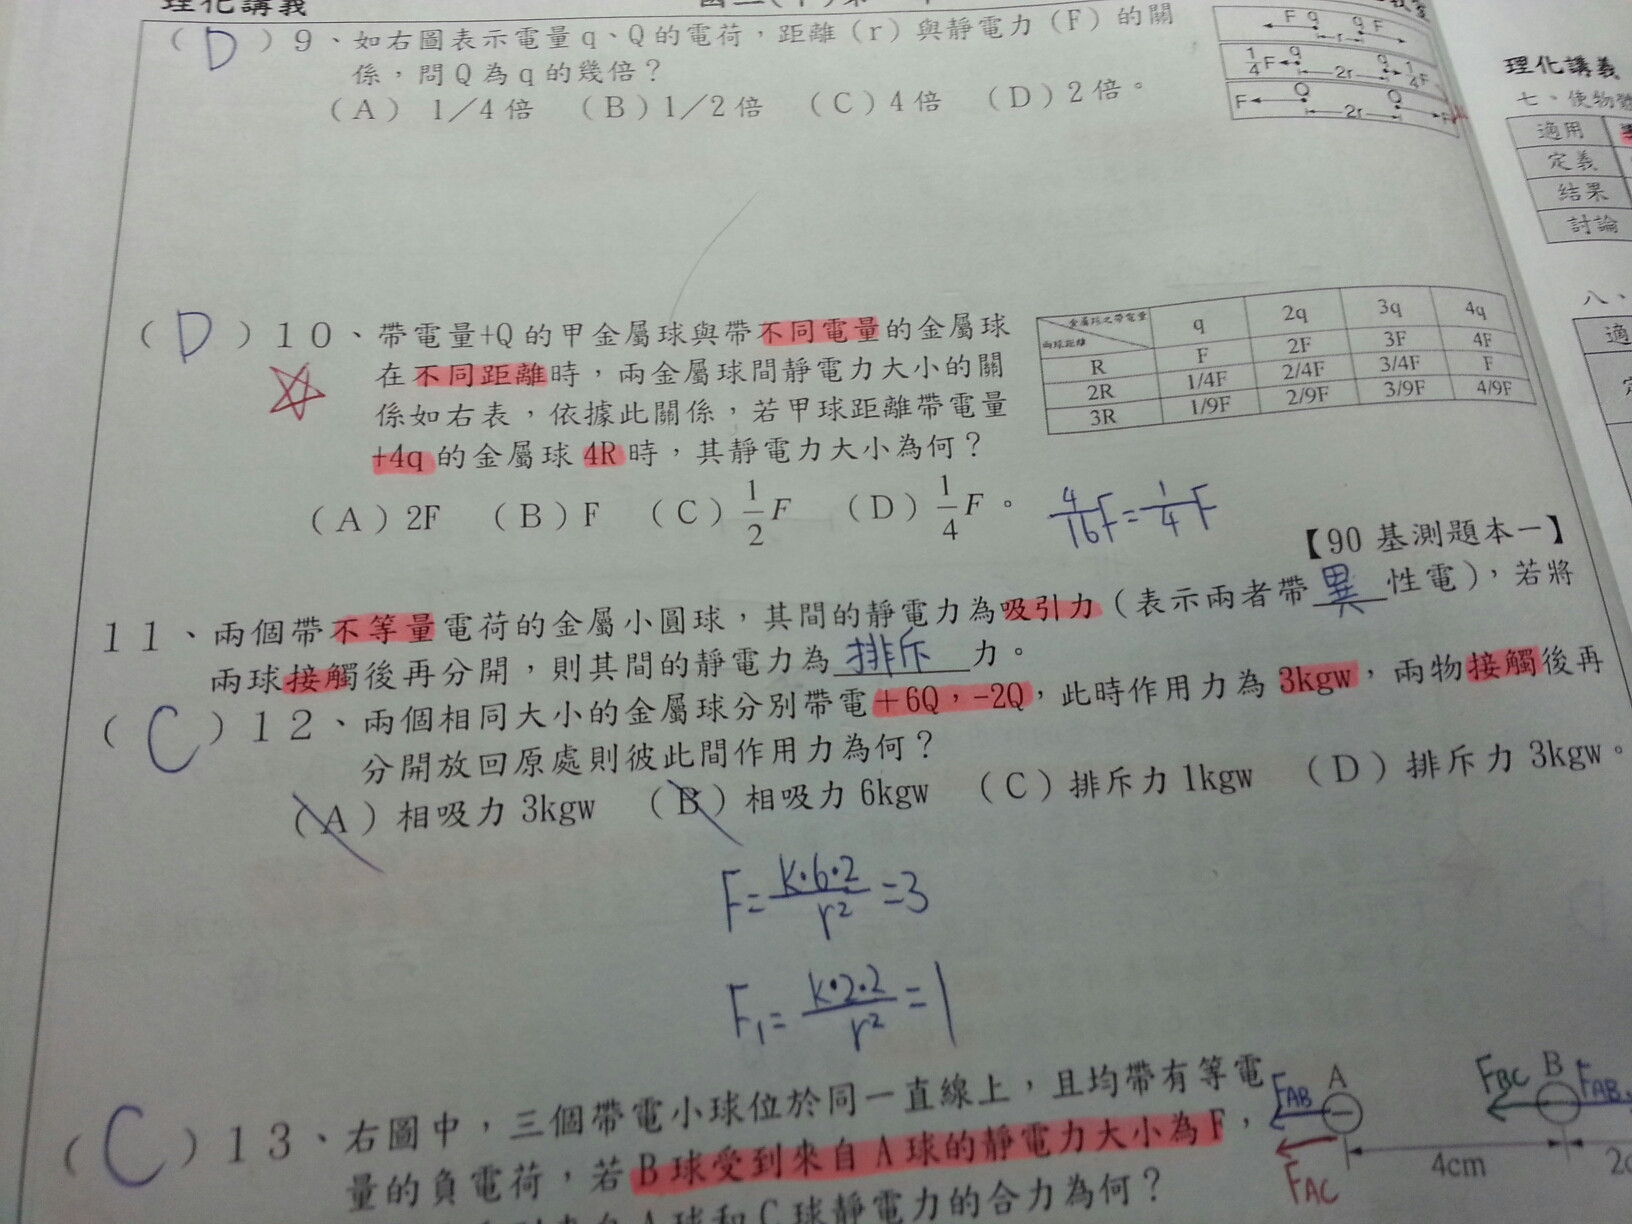 理化講義
(D)9、如右圖表示電量q、Q的電荷，距離(r)與靜電力(F)的關
係，問Q為q的幾倍？
(A) 1／4倍 (B)1／2倍 (C)4倍 (D)2倍。
F q q F
r
1/4F q q 1/4F
2r
F Q Q F
2r
(D)10、帶電量+Q的甲金屬球與帶不同電量的金屬球
在不同距離時，兩金屬球間靜電力大小的關
係如右表，依據此關係，若甲球距離帶電量
+4q的金屬球4R時，其靜電力大小為何？
金屬球之帶電量 兩球距離 q 2q 3q 4q
R F 2F 3F 4F
2R 1/4F 2/4F 3/4F F
3R 1/9F 2/9F 3/9F 4/9F
(A)2F (B)F (C)1/2 F (D)1/4 F。
4/16 F = 1/4 F
【90 基測題本一】
11、兩個帶不等量電荷的金屬小圓球，其間的靜電力為吸引力(表示兩者帶異性電)，若將
兩球接觸後再分開，則其間的靜電力為排斥力。
(C)12、兩個相同大小的金屬球分別帶電＋6Q，-2Q，此時作用力為3kgw，兩物接觸後再
分開放回原處則彼此間作用力為何？
(A)相吸力3kgw (B)相吸力6kgw (C)排斥力1kgw (D)排斥力3kgw。
F=K·6·2/r²=3
F₁=K·2·2/r²=1
(C)13、右圖中，三個帶電小球位於同一直線上，且均帶有等電
量的負電荷，若B球受到來自A球的靜電力大小為F，
A球和C球靜電力的合力為何？
FAB A FBC B FAB
FAC 4cm
理化講義
七、使物
適用
定義
結果
討論
八、
適